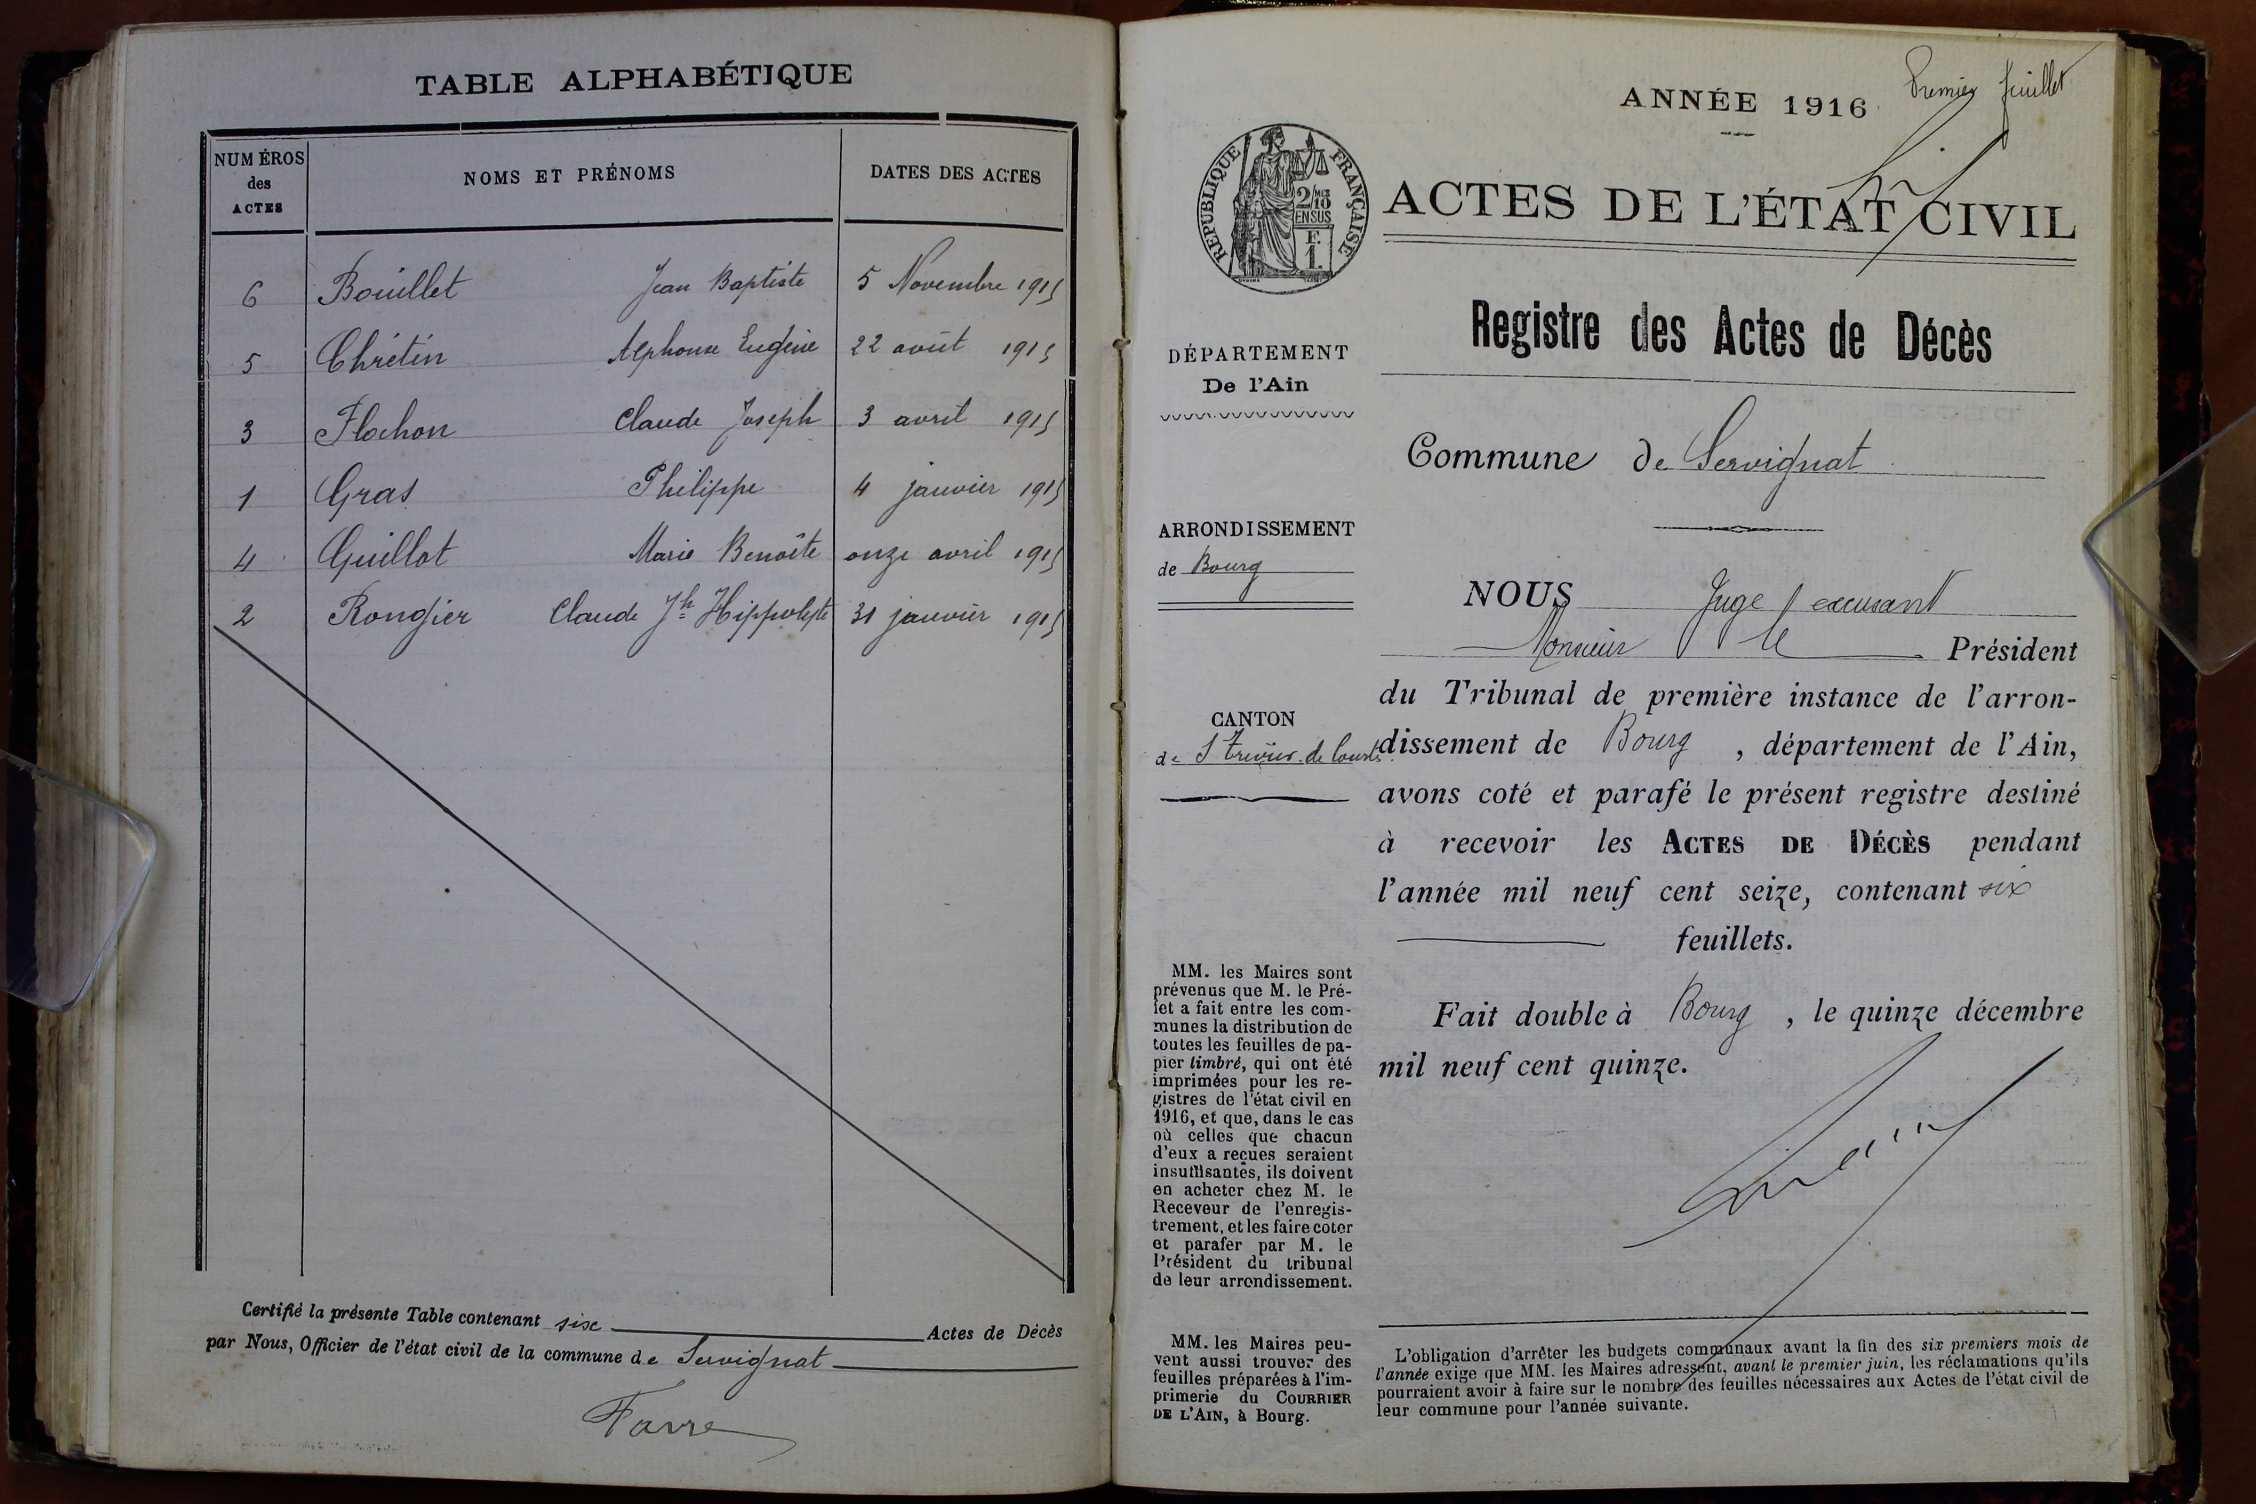 TABLE ALPHABÉTIQUE
NUMÉROS des ACTES | NOMS ET PRÉNOMS | DATES DES ACTES
6 Bouillet Jean Baptiste 5 Novembre 1915
5 Chrétin Alphonse Eugène 22 août 1915
3 Flochon Claude Joseph 3 avril 1915
1 Gras Philippe 4 janvier 1915
4 Guillot Marie Benoîte onze avril 1915
2 Rongier Claude Jh Hippolyte 31 janvier 1915
Certifié la présente Table contenant six Actes de Décès
par Nous, Officier de l'état civil de la commune de Servignat
Favre
Premier feuillet
ANNÉE 1916
RÉPUBLIQUE FRANÇAISE
2/10 MES
EN SUS
F.
1.
ACTES DE L'ÉTAT CIVIL
Registre des Actes de Décès
DÉPARTEMENT
De l'Ain
Commune de Servignat
ARRONDISSEMENT
de Bourg
CANTON
de St Trivier de Courtes
NOUS Juge excusant
Monsieur le Président
du Tribunal de première instance de l'arron-
dissement de Bourg, département de l'Ain,
avons coté et parafé le présent registre destiné
à recevoir les ACTES DE DÉCÈS pendant
l'année mil neuf cent seize, contenant six
feuillets.
Fait double à Bourg, le quinze décembre
mil neuf cent quinze.
MM. les Maires sont
prévenus que M. le Pré-
fet a fait entre les com-
munes la distribution de
toutes les feuilles de pa-
pier timbré, qui ont été
imprimées pour les re-
gistres de l'état civil en
1916, et que, dans le cas
où celles que chacun
d'eux a reçues seraient
insuffisantes, ils doivent
en acheter chez M. le
Receveur de l'enregis-
trement, et les faire coter
et parafer par M. le
Président du tribunal
de leur arrondissement.
MM. les Maires peu-
vent aussi trouver des
feuilles préparées à l'im-
primerie du COURRIER
DE L'AIN, à Bourg.
L'obligation d'arrêter les budgets communaux avant la fin des six premiers mois de
l'année exige que MM. les Maires adressent, avant le premier juin, les réclamations qu'ils
pourraient avoir à faire sur le nombre des feuilles nécessaires aux Actes de l'état civil de
leur commune pour l'année suivante.